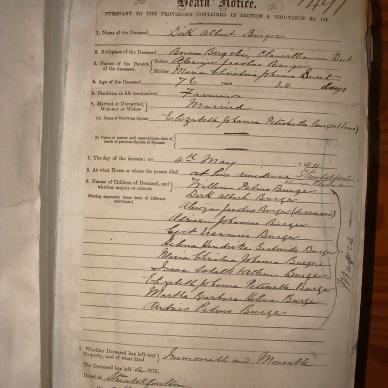 7491
Death Notice.
PURSUANT TO THE PROVISIONS CONTAINED IN SECTION 9, ORDINANCE No. 104
1. Name of the Deceased Dirk Albert Burger
2. Birthplace of the Deceased Clanwilliam
3. Names of the Parents of the deceased. Father, Jacobus Burger
Mother, Maria Christina Johanna
4. Age of the Deceased 76 years days
5. Condition in life (occupation) Farmer
6. Married or Unmarried, Widower or Widow Married
(a) Name of Surviving Spouse Elizabeth Johanna Petronella Burger
(b) Name or names and approximate date of death of previous Spouse or Spouses
7. The day of the decease: on 4th May
8. At what House or where the person died at his residence
9. Names of Children of Deceased, and whether majors or minors Willem Petrus Burger
Dirk Albert Burger
Jacobus Burger (deceased)
Adriaan Johannes Burger
Gert Erasmus Burger
Helena Hendrika Gertruida Burger
Maria Christina Johanna Burger
Burger
Elizabeth Johanna Petronella Burger
Martha Barbara Helena Burger
Andries Petrus Burger
Majors
Whether Deceased has left any Property, and of what kind Immovable and Movable
The Deceased has left a Will.
Dated at